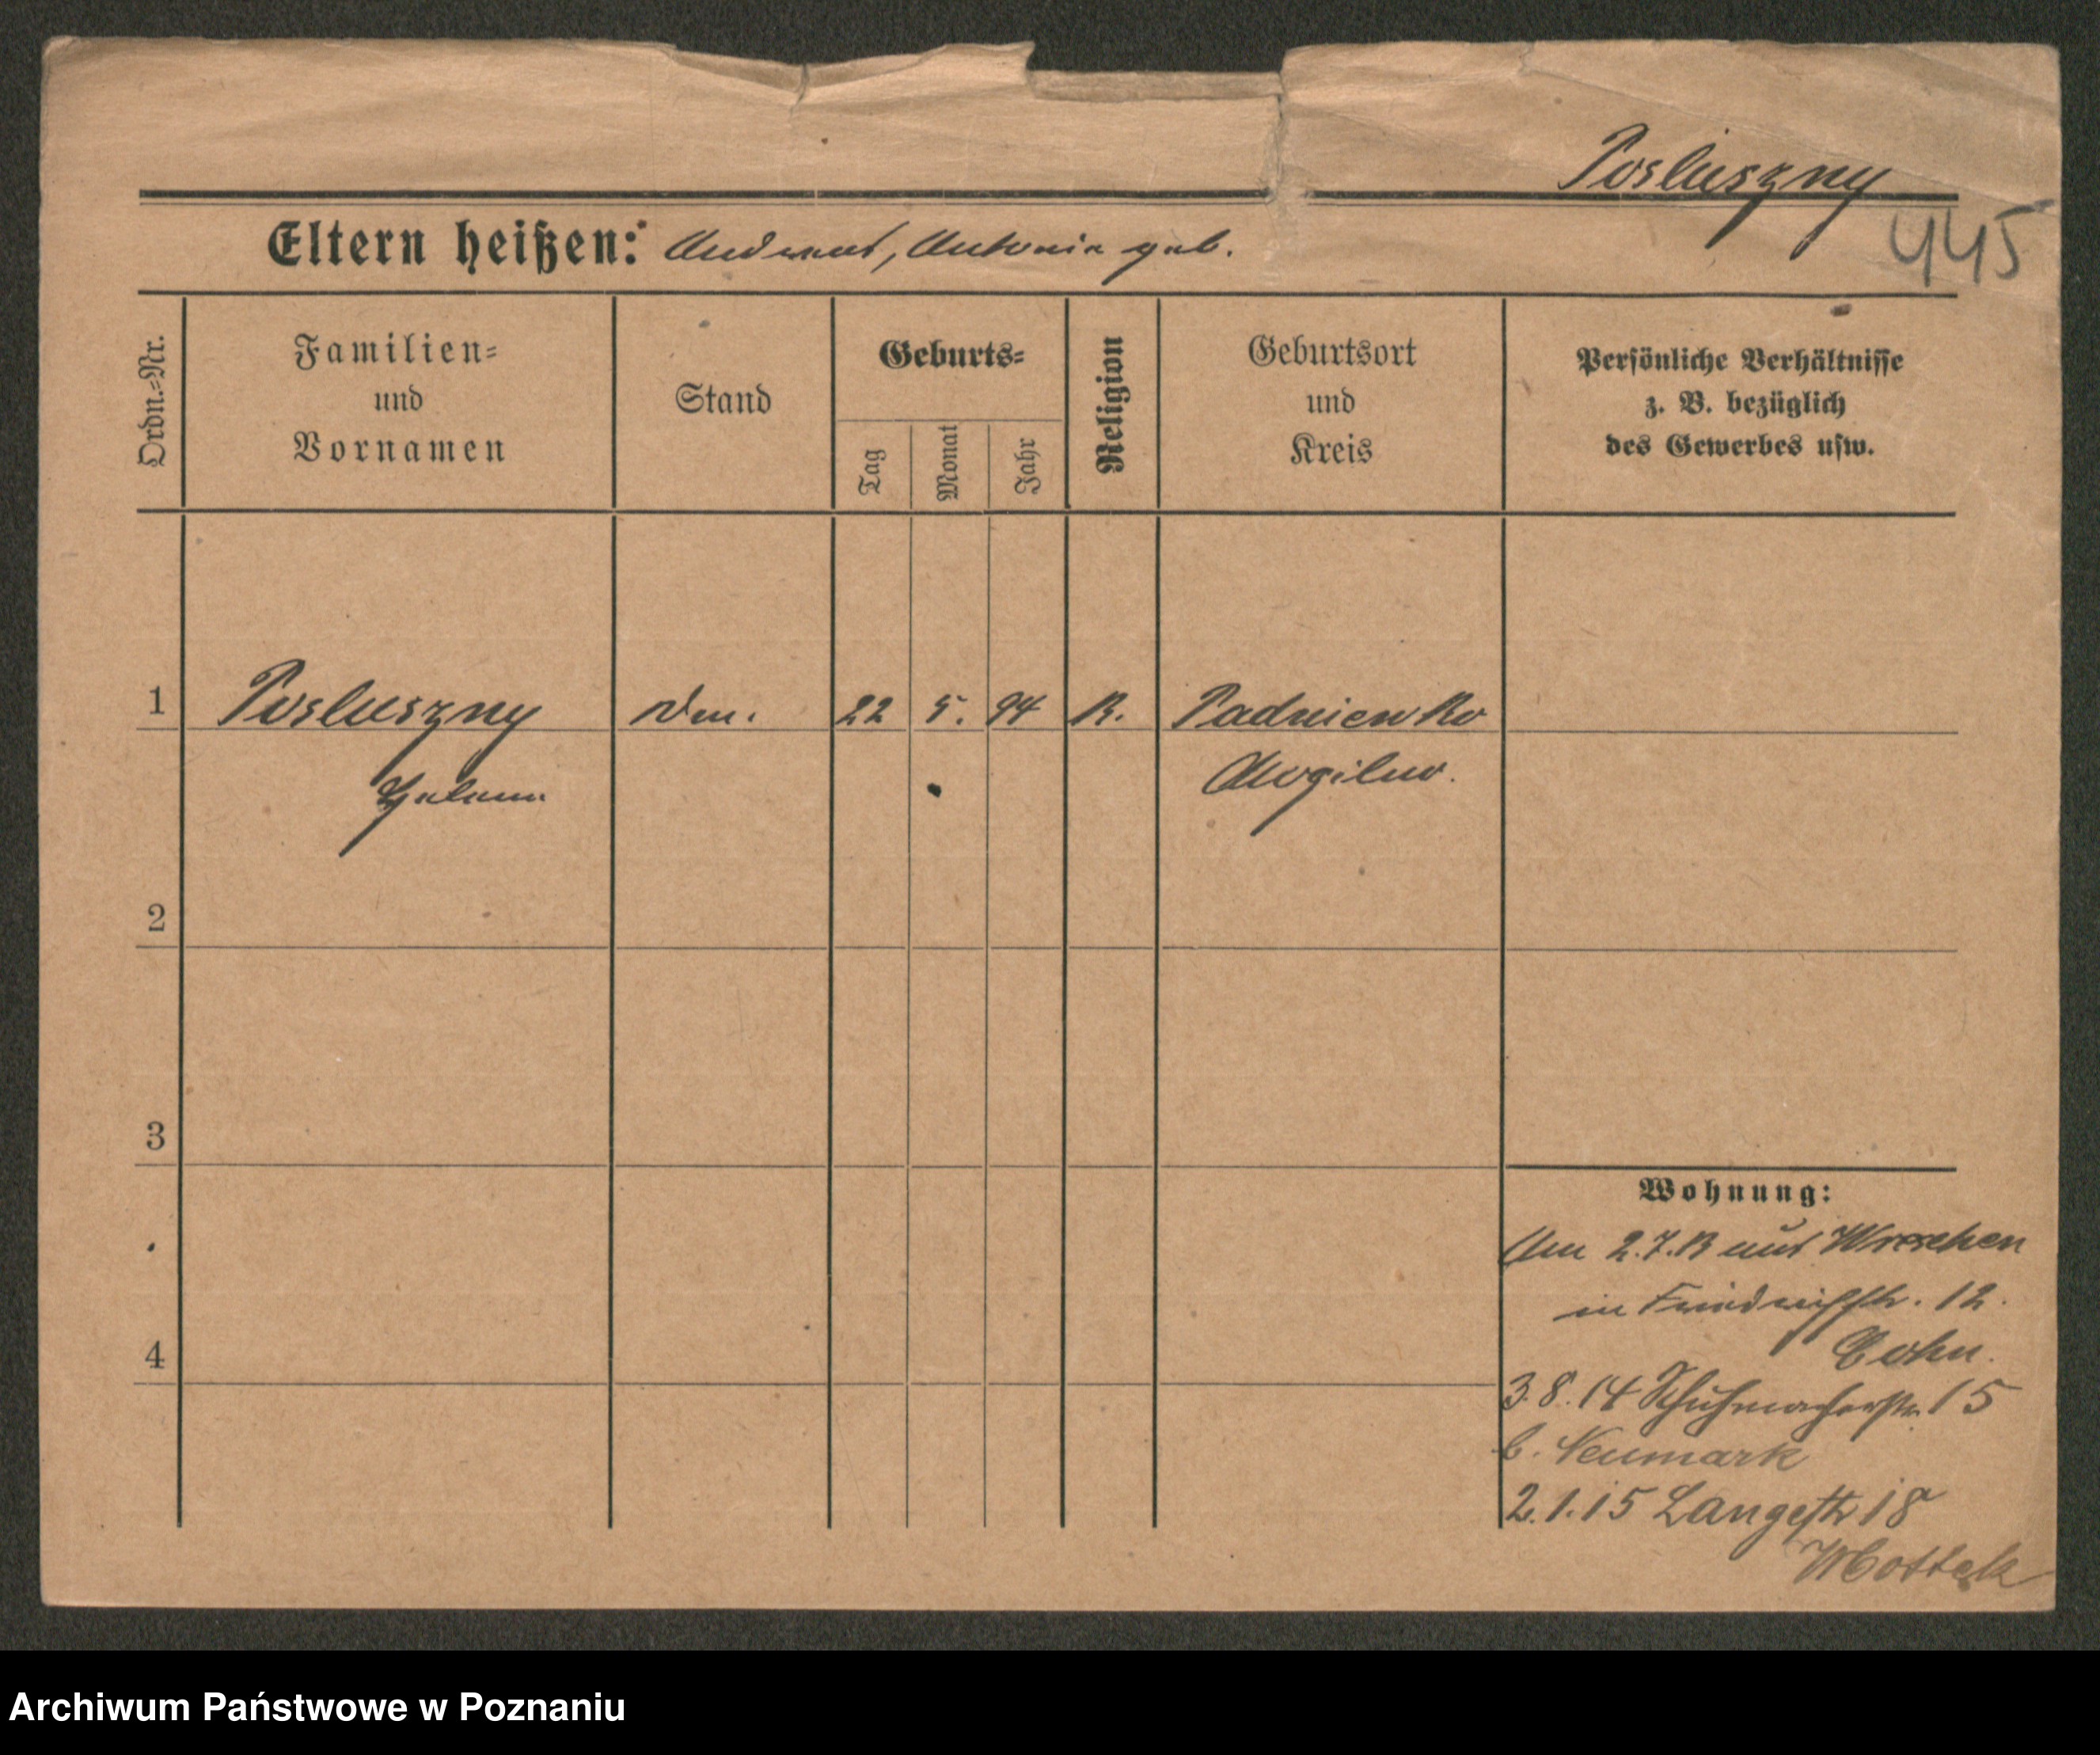 Posluszny
445
Eltern heißen: Andreas, Antonia geb.
Ordn.=Nr.
Familien=
und
Vornamen
Stand
Geburts=
Tag
Monat
Jahr
Religion
Geburtsort
und
Kreis
Persönliche Verhältnisse
z. B. bezüglich
des Gewerbes usw.
1 Posluszny 22 5. 94 K. Padniewko
Helene Mogilno.
2
3
4
Wohnung:
Am 2.7.13 aus Wreschen
in Friedrichstr. 12.
Cohn.
3.8.14 Schuhmacherstr. 15
b. Neumark
2.1.15 Langestr 18
Mottek
Archiwum Państwowe w Poznaniu